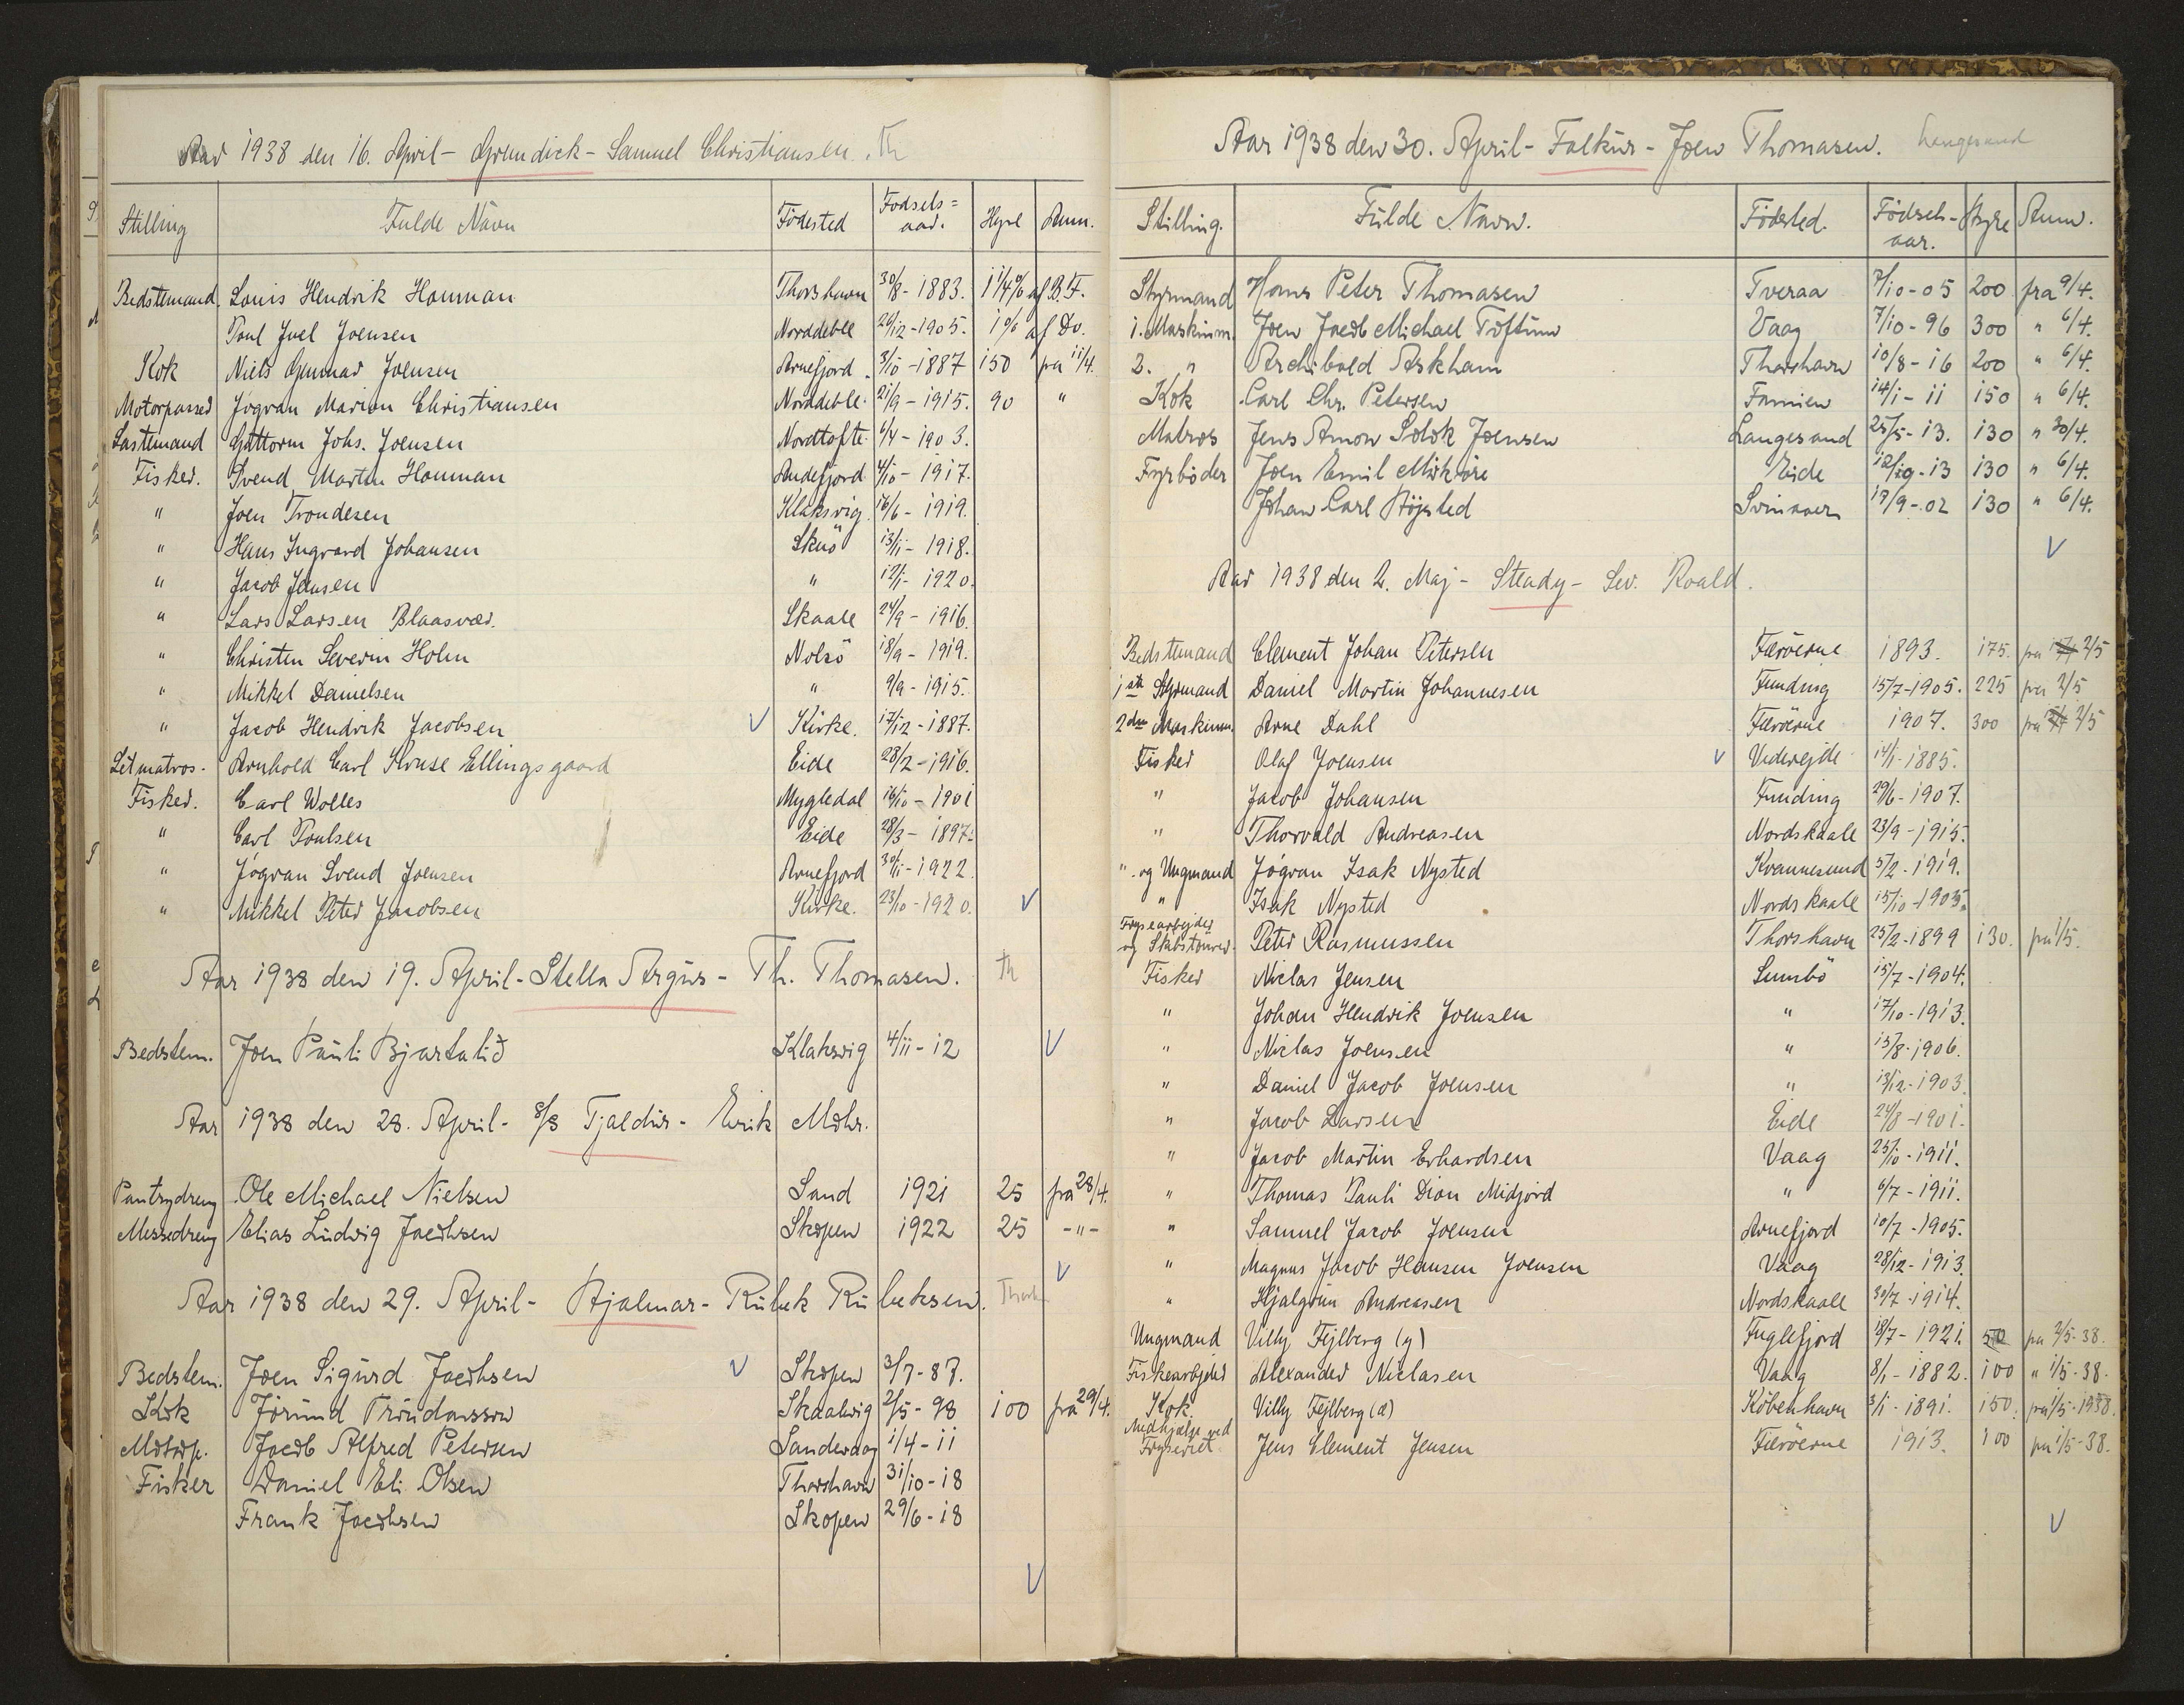 Aar 1938 den 16. April - Grundick - Samuel Christiansen. Th
Stilling Fulde Navn Födested Födsels= aar. Hyre Anm.
Bedstemand. Louis Hendrik Houman Thorshavn 30/8 - 1883. 1 1/4 % af B.F.
Poul Juel Joensen Norddeble 29/12 - 1905. 1 % af Do.
Kok Niels Gunnar Joensen Arnefjord 3/10 - 1887 150 fra 11/4.
Motorpasser Jógvan Marion Christiansen Norddeble. 21/9 - 1915. 90 "
Lastemand Guttorm Johs. Joensen Nordtofte 6/4 - 1903.
Fisker. Svend Martin Houman Andefjord 4/10 - 1917.
" Joen Trondesen Klaksvig. 16/6 - 1919.
" Hans Ingvard Johansen Skuö 13/11 - 1918.
" Jacob Jensen " 12/1 - 1920.
" Lars Larsen Blaasvær. Skaale 24/9 - 1916.
" Christen Severin Holm Nolsö 18/9 - 1919.
" Mikkel Danielsen " 9/9 - 1915.
" Jacob Hendrik Jacobsen V Kirke. 17/12 - 1887.
Letmatros. Arnhold Carl Kruse Ellingsgaard Eide 28/2 - 1916.
Fisker. Carl Wolles Mygledal 16/10 - 1901
" Carl Poulsen Eide 28/3 - 1897.
" Jógvan Svend Joensen Arnefjord 30/11 - 1922.
" Mikkel Peter Jacobsen Kirke. 23/10 - 1920. V
Aar 1938 den 19. April - Stella Argus - Th. Thomasen. Th
Bedstem. Joen Pauli Bjartalid Klaksvig 4/11 - 12 V
Aar 1938 den 28. April - s/s Tjaldur - Erik Mohr.
Pantrydreng Ole Michael Nielsen Sand 1921 25 fra 28/4.
Messedreng Elias Ludvig Jacobsen Skopen 1922 25 - " -
V
Aar 1938 den 29. April - Hjalmar - Rubek Rubeksen. Thorsh
Bedstem. Joen Sigurd Jacobsen V Skopen 3/7 - 87.
Kok Jörund Tröndarsson Skaalvig 2/5 - 98 100 fra 29/4.
Motorp. Jacob Alfred Petersen Sandevaag 1/4 - 11
Fisker Daniel Eli Olsen Thorshavn 31/10 - 18
Frank Jacobsen Skopen 29/6 - 18
V
Aar 1938 den 30. April - Falkur - Joen Thomasen. Langesand
Stilling. Fulde Navn. Födested. Födsels- aar. Hyre Anm.
Styrmand Hans Peter Thomasen Tveraa 7/10 - 05 200 fra 9/4.
1. Maskinm. Joen Jacob Michael Toftum Vaag 7/10 - 96 300 " 6/4.
2. " Archibald Arkham Thorshavn 10/8 - 16 200 " 6/4.
Kok Carl Chr. Petersen Famien 14/1 - 11 150 " 6/4.
Matros Jens Amon Joensen Langesand 25/5 - 13. 130 " 30/4.
Fyrböder Joen Emil Eide 130 " 6/4.
Johan Carl Höjsted Svinaaer 19/9 - 02 130 " 6/4.
V
Aar 1938 den 2. Maj - Steady - Sev. Roald.
Bedstemand Clement Johan Petersen Færöerne 1893. 175. fra 2/5
1ste Styrmand Daniel Martin Johannesen Funding 15/7 - 1905. 225 fra 2/5
2den Maskinm. Arne Dahl Færöerne 1907. 300 fra 2/5
Fisker Olaf Joensen V Viderejde 14/1 - 1885.
" Jacob Johansen Funding 29/6 - 1907.
" Thorvald Andreasen Nordskaale 23/9 - 1915.
" og Ungmand Jógvan Isak Nysted Kvannesund 5/2 - 1919.
" Isak Nysted Nordskaale 15/10 - 1905.
Frysearbejder og Skibstömrer. Peter Rasmussen Thorshavn 25/2 - 1899 130. fra 1/5.
Fisker Niclas Jensen Sumbö 15/7 - 1904.
" Johan Hendrik Joensen " 17/10 - 1913.
" Niclas Joensen " 15/8 - 1906.
" Daniel Jacob Joensen " 13/12 - 1903.
" Jacob Larsen Eide 24/8 - 1901.
" Jacob Martin Erhardsen Vaag 25/10 - 1911.
" Thomas Pauli Dion Midjord " 6/7 - 1911.
" Samuel Jacob Joensen Arnefjord 10/7 - 1905.
" Magnus Jacob Hansen Joensen Vaag 28/12 - 1913.
" Hjalgrim Andreasen Nordskaale 30/7 - 1914.
Ungmand Villy Fejlberg (y) Fuglefjord 18/7 - 1921. 50 fra 2/5 - 38.
Fiskearbejder Alexander Niclasen Vaag 8/1 - 1882. 100 " 1/5 - 38.
Kok. Villy Fejlberg (æ) Köbenhavn 3/1 - 1891. 150. fra 1/5 - 1938.
Medhjælp. ved Fryseriet. Jens Clement Jensen Færöerne 1913. 100 fra 1/5 - 38.
V